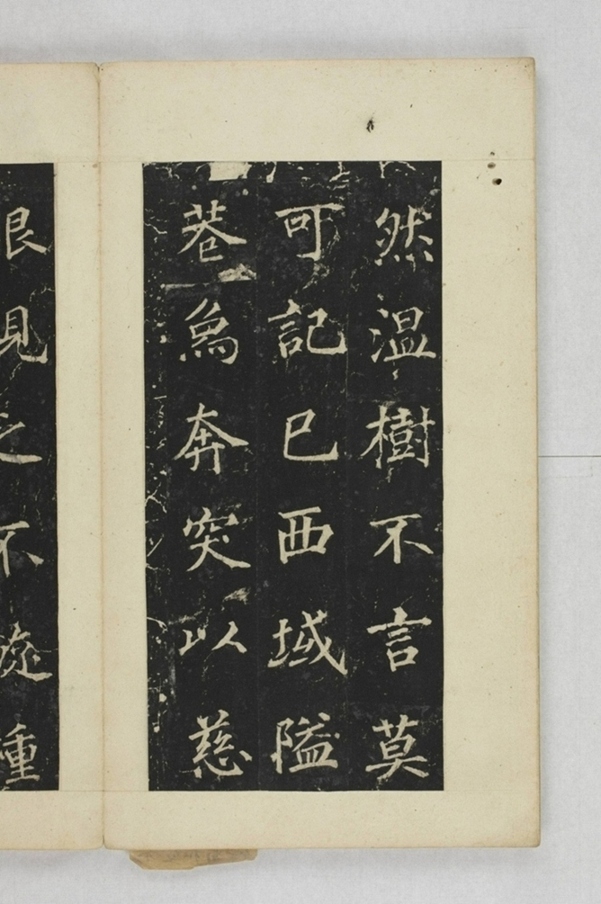 然温樹不言莫
可記已西域隘
巷象奔突以慈
眼見之不旋踵